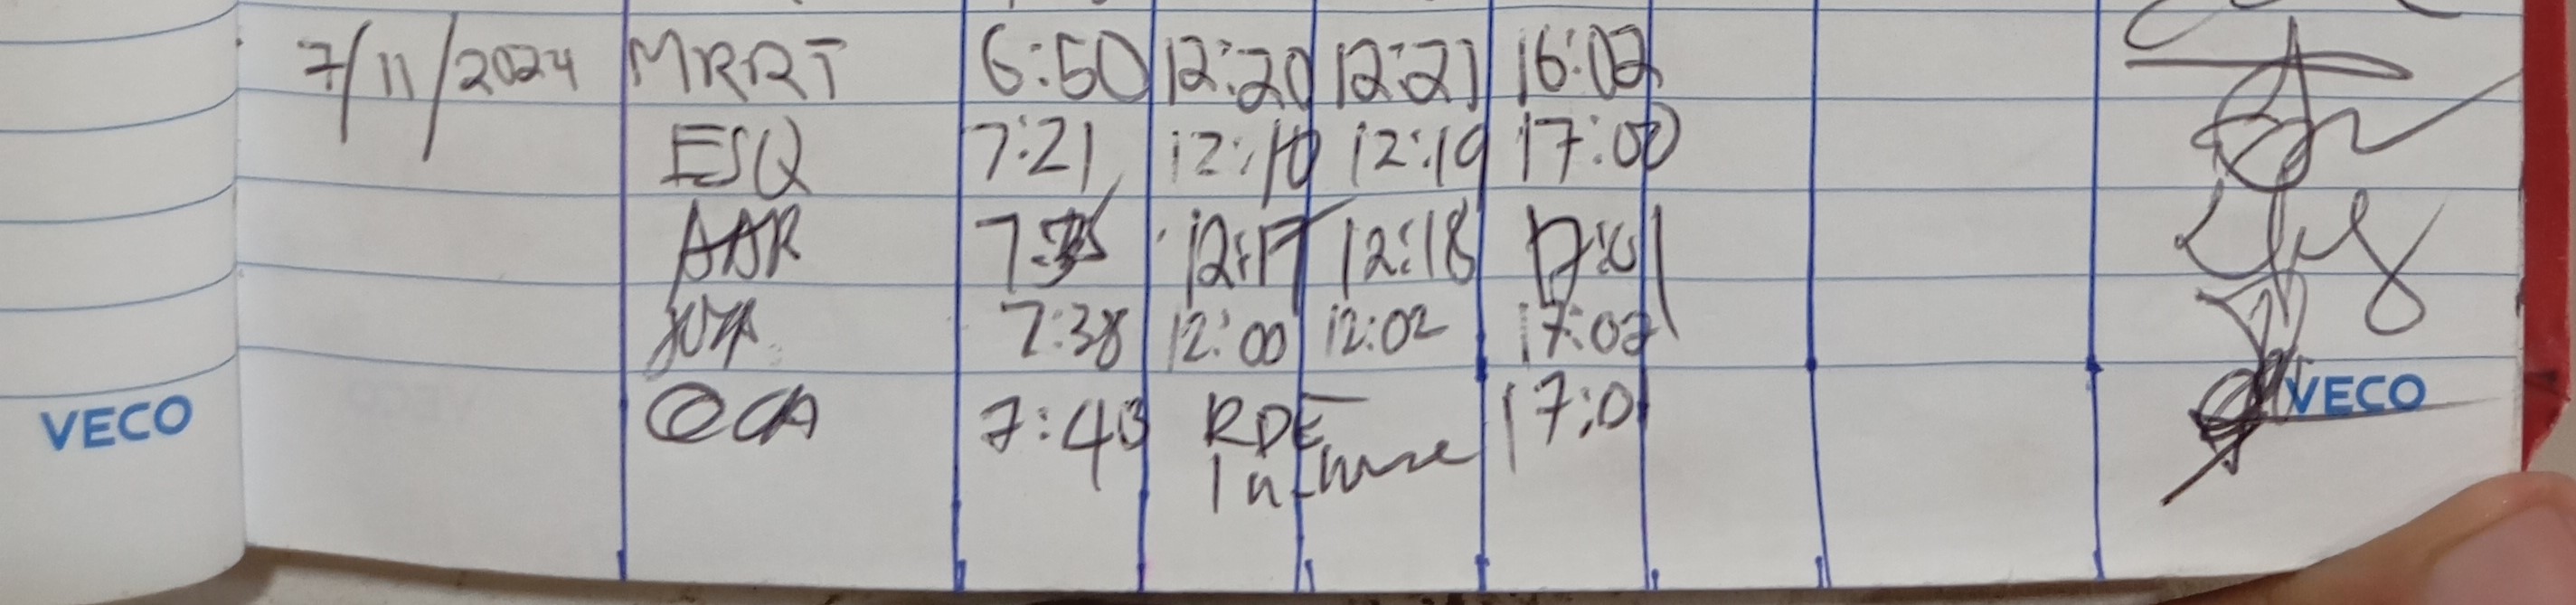 7/11/2024 MRRT 6:50 12:20 12:21 16:02
ESQ 7:21 12:10 12:19 17:00
AAR 12:17 12:18 17:01
7:38 12:00 12:02 17:02
VECO OCA 7:43 RDE 17:01 VECO
In